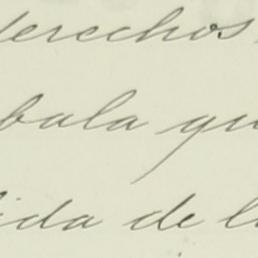 derechos
bala qu
ida de l